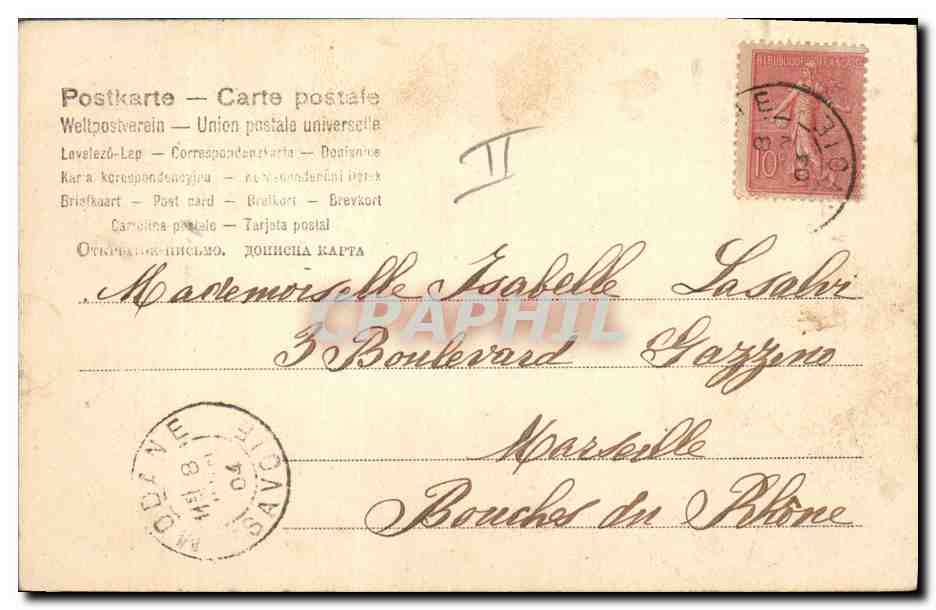 Postkarte — Carte postale
Weltpostverein — Union postale universelle
Levelező-Lap — Correspondenzkarte — Dopisnice
Karta korespondencyjna — Korespondenční lístek
Briefkaart — Post card — Brefkort — Brevkort
Cartolina postale — Tarjeta postal
Открытое письмо. дописна карта
II
REPUBLIQUE FRANÇAISE
10c
Mademoiselle Isabelle Lasalvi
3 Boulevard Gazzino
Marseille
Bouches du Rhône
CPAPHIL
MODANE
SAVOIE
8
04